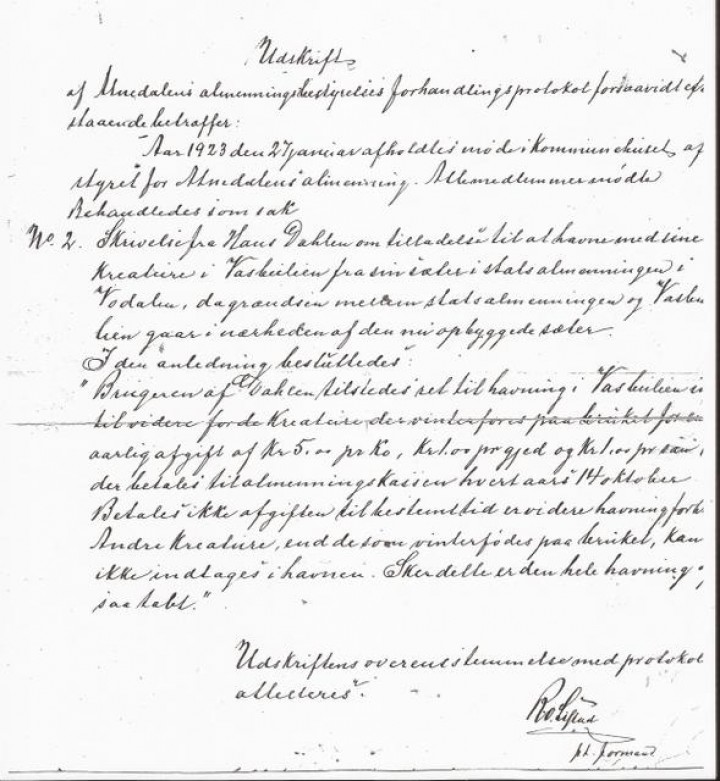 Udskrift
af Atnedalens almenningsbestyrelses forhandlingsprotokol forsaavidt
staaende betræffer:
Aar 1923 den 27 januar afholdtes møde i Kommunehuset af
styret for Atnedalens almenning. Alle medlemmer mødte
Behandledes som sak
No. 2. Skrivelse fra Hans Dahlen om tilladelse til at havne med sine
kreature i Vasbulien fra sin sæter i statsalmenningen i
Vodalen, da grændsen mellem statsalmenningen og Vasbu
lien gaar i nærheden af den nu opbyggede sæter.
I den anledning besluttedes:
"Brugeren af Dahlen tilstedes ret til havning i Vasbulien
til videre for de kreature der vinterfores paa bruket for
aarlig afgift af Kr 5.00 pr Ko, Kr 1.00 pr gjed og Kr 1.00 pr sau,
der betales til almenningskassen hvert aars 14 oktober
Betales ikke afgiften til bestemt tid er videre havning forb
Andre kreature, end de som vinterfødes paa bruket, kan
ikke indtages i havnen. Sker dette er den hele havning
saa tabt."
Udskriftens overensstemmelse med protokol
attesteres.
pt. formand